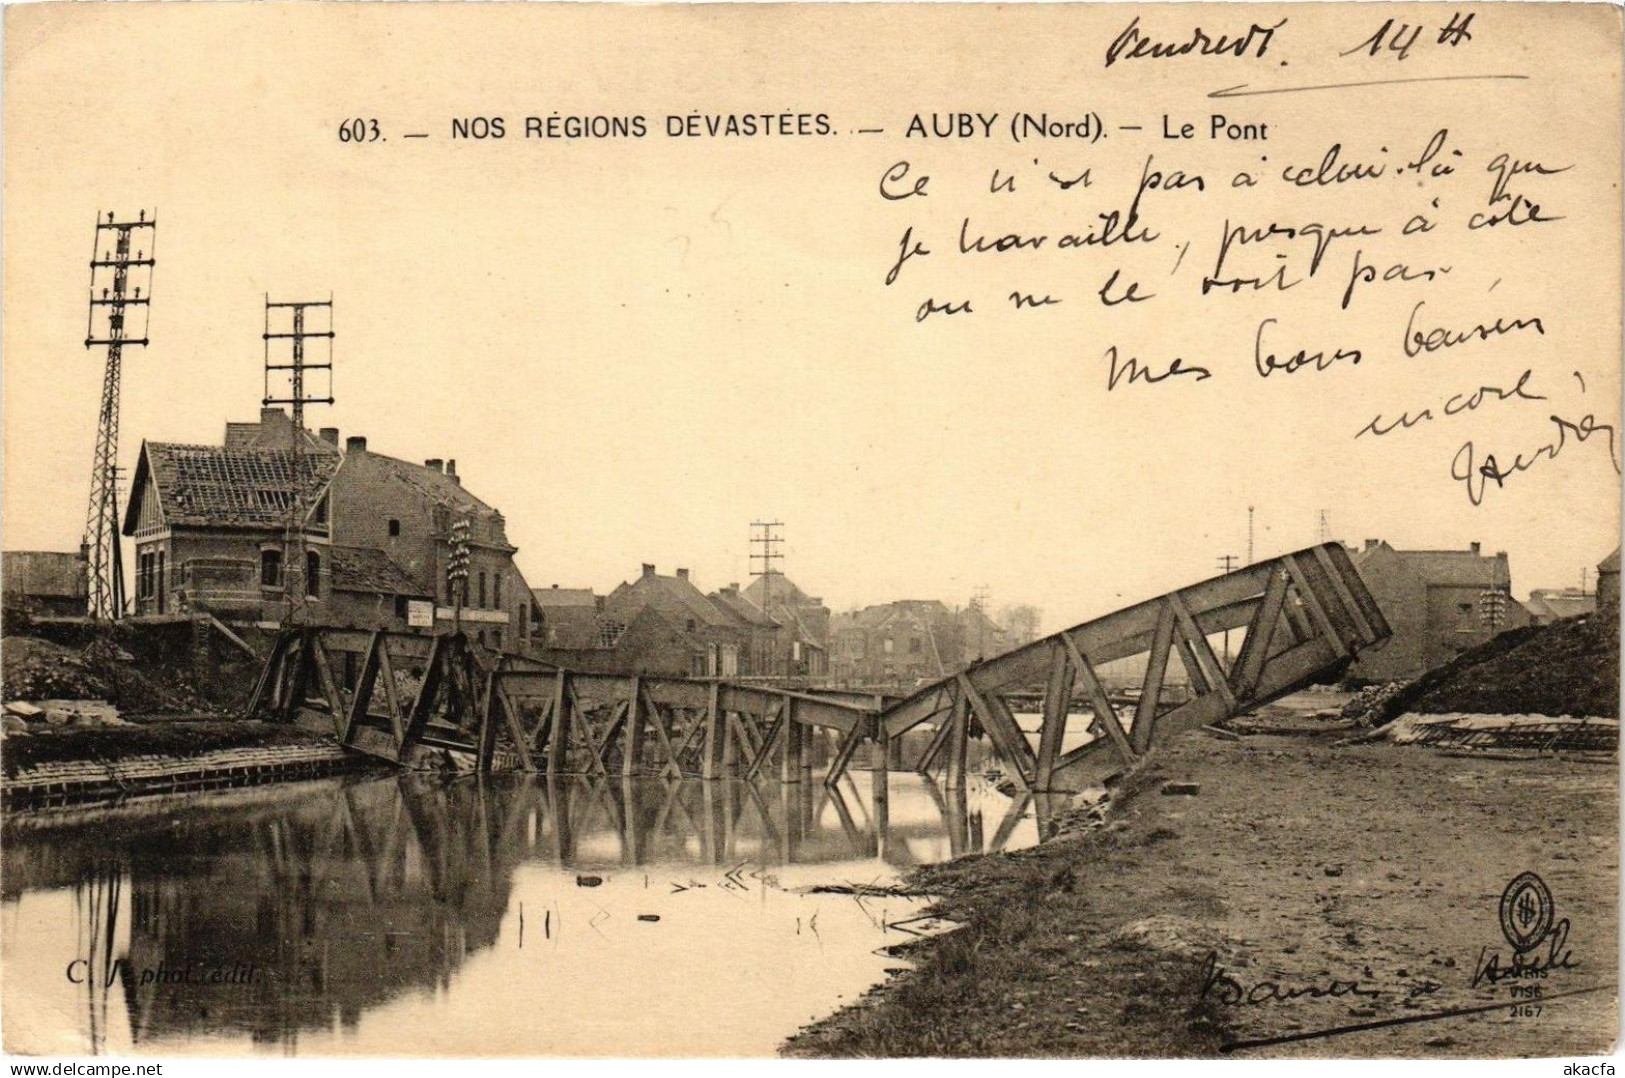 Vendredi. 14 H
603. — NOS RÉGIONS DÉVASTÉES. — AUBY (Nord). — Le Pont
Ce n'est pas à celui-là que
je travaille, presque à côté
on ne le voit pas,
Mes bons baisers
encore,
C. J. phot. édit.
Baisers à Adèle
PARIS
VISE
2167
akacfa
delcampe.net